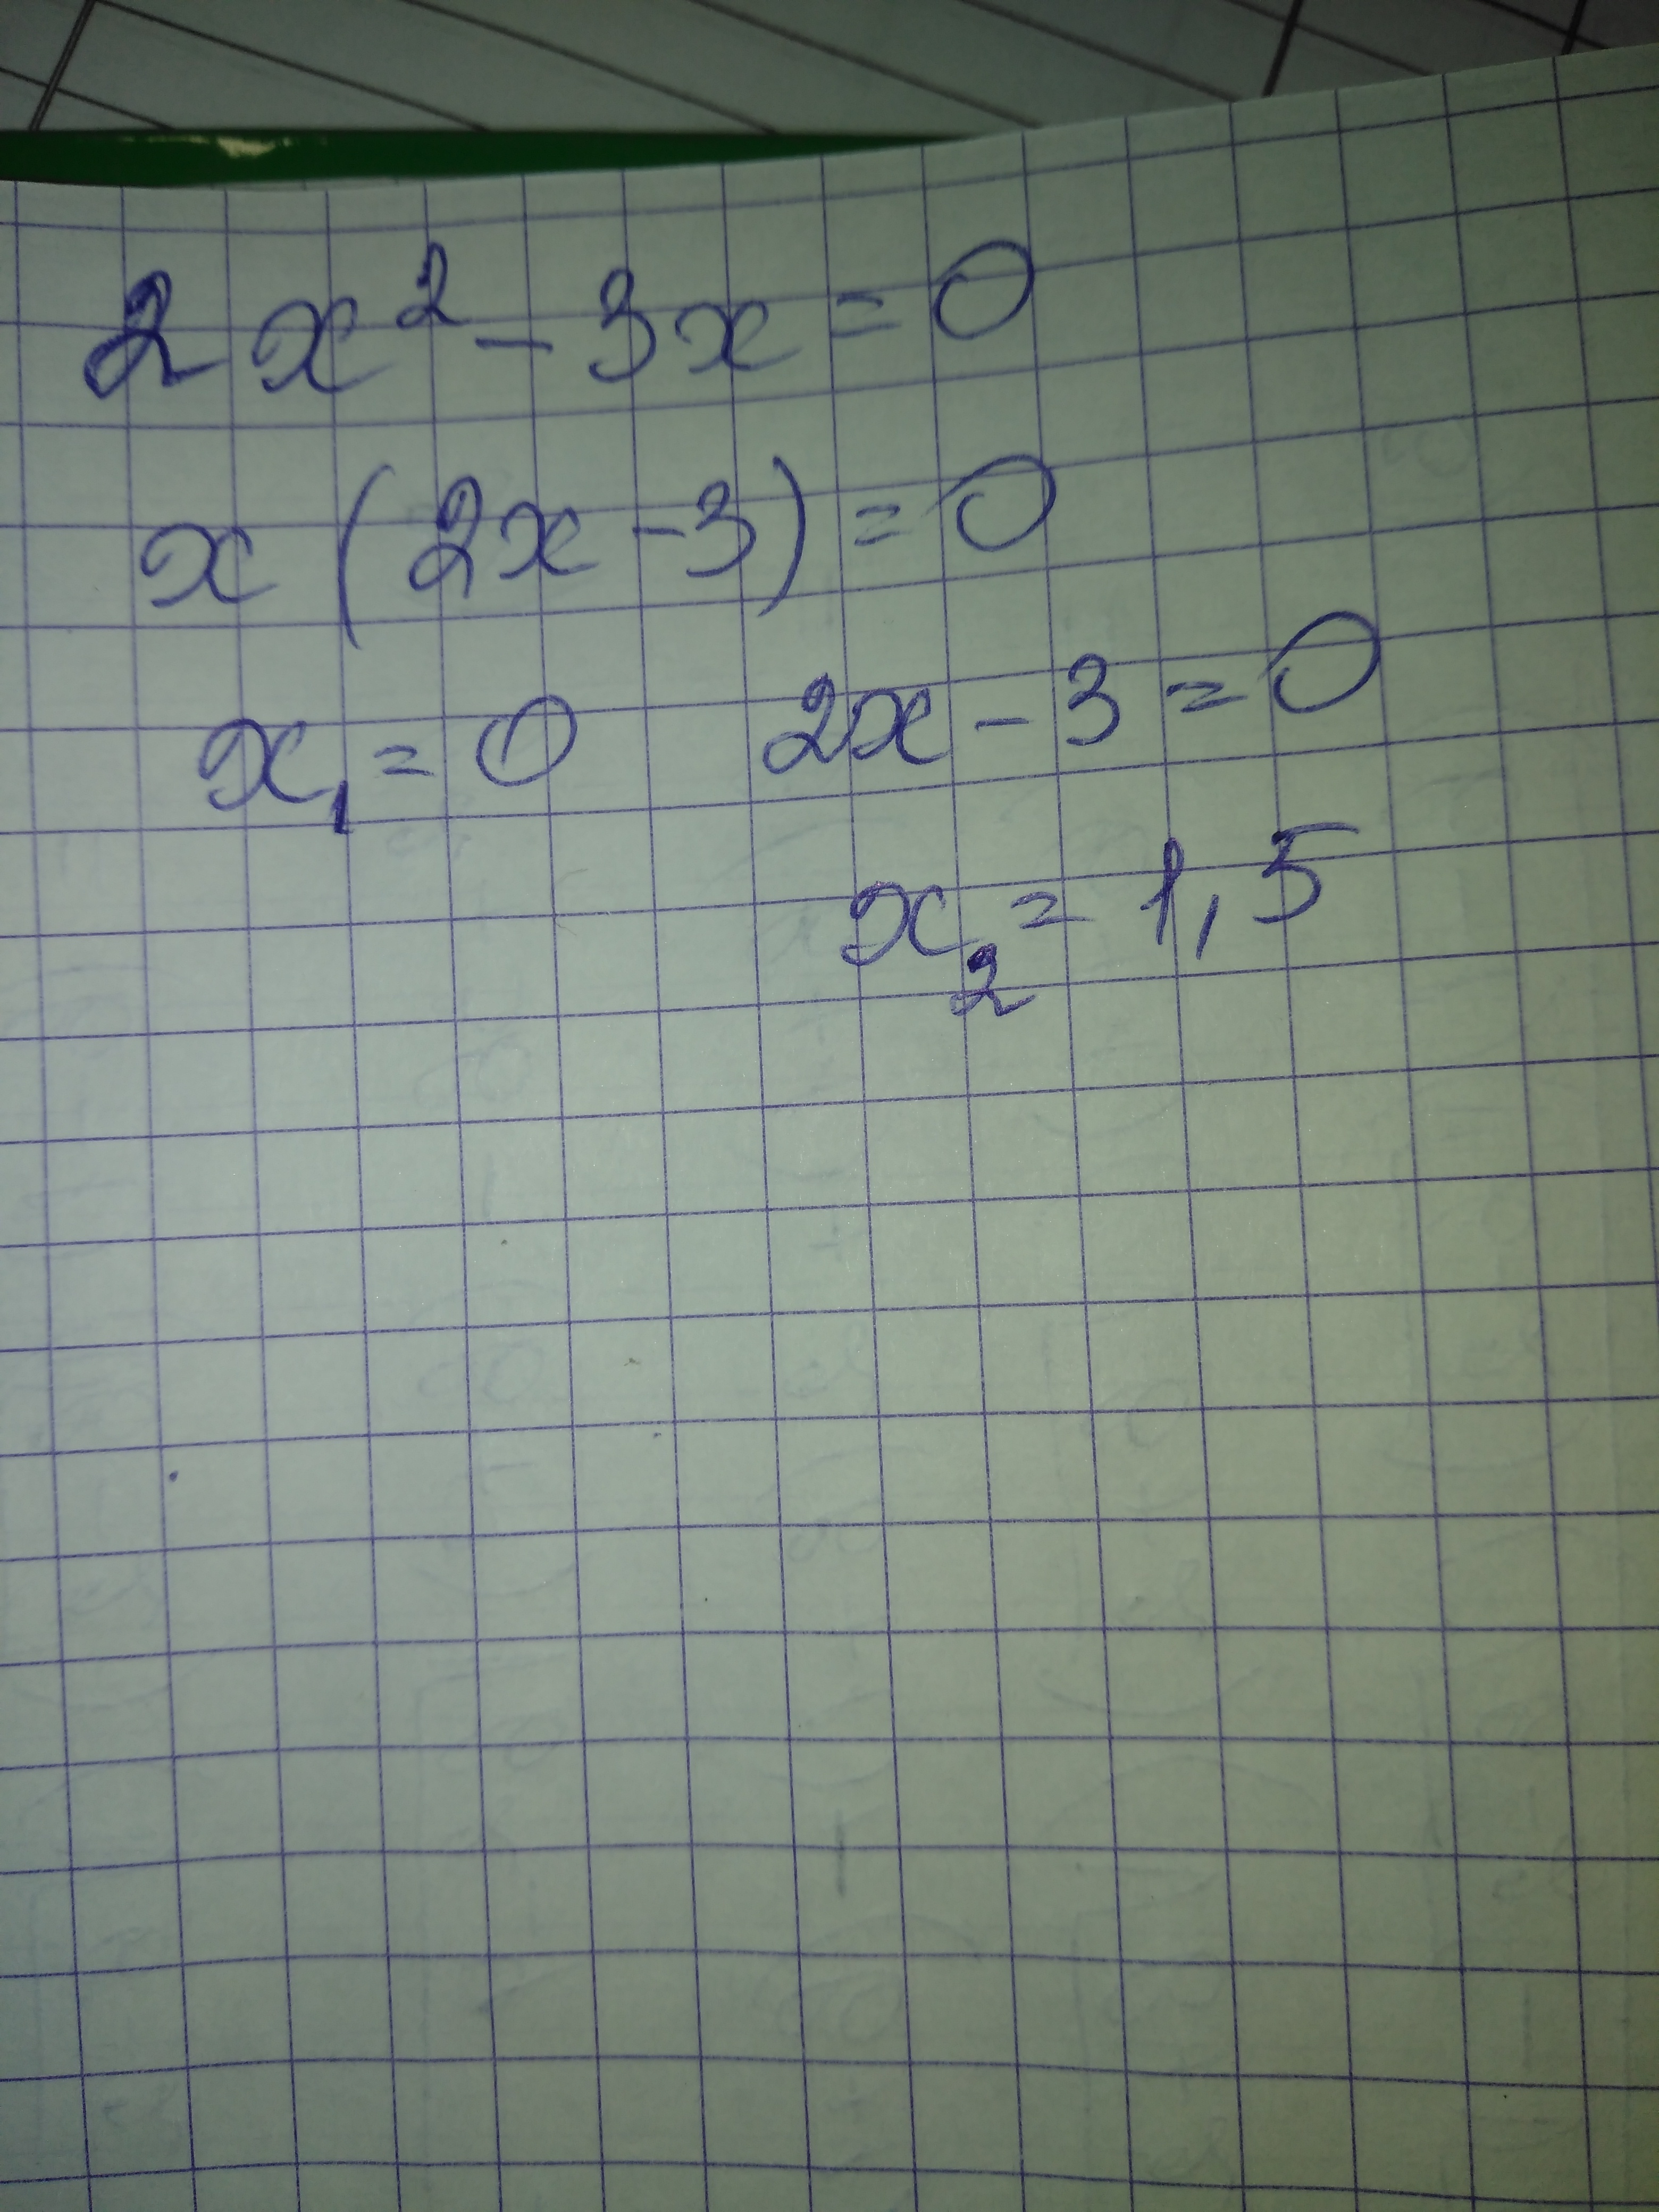 2x² - 3x = 0
x (2x - 3) = 0
x₁ = 0 2x - 3 = 0
x₂ = 1,5